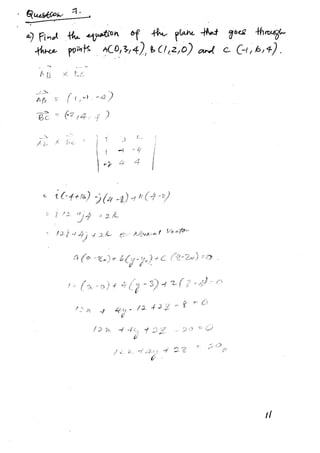 Question 7.
a) Find the equation of the plane that goes through
three points A(0,3,4), b(1,2,0) and c(-1,6,4).
AB × BC
AB = (1,-1,-4)
BC = (-2,4,4)
AB × BC = | i j k
1 -1 -4
-2 4 4 |
= i(-4+16) -j(4-8)+k(4-2)
= i12 +j4 +2k
= 12i+4j+2k ← Normal Vector
a(x-x₀)+b(y-y₀)+c(z-z₀)=0
12(x-0)+4(y-3)+2(z-4)=0
12x + 4y-12+2z-8=0
12x +4y+2z-20=0
12x+4y+2z = 20
11